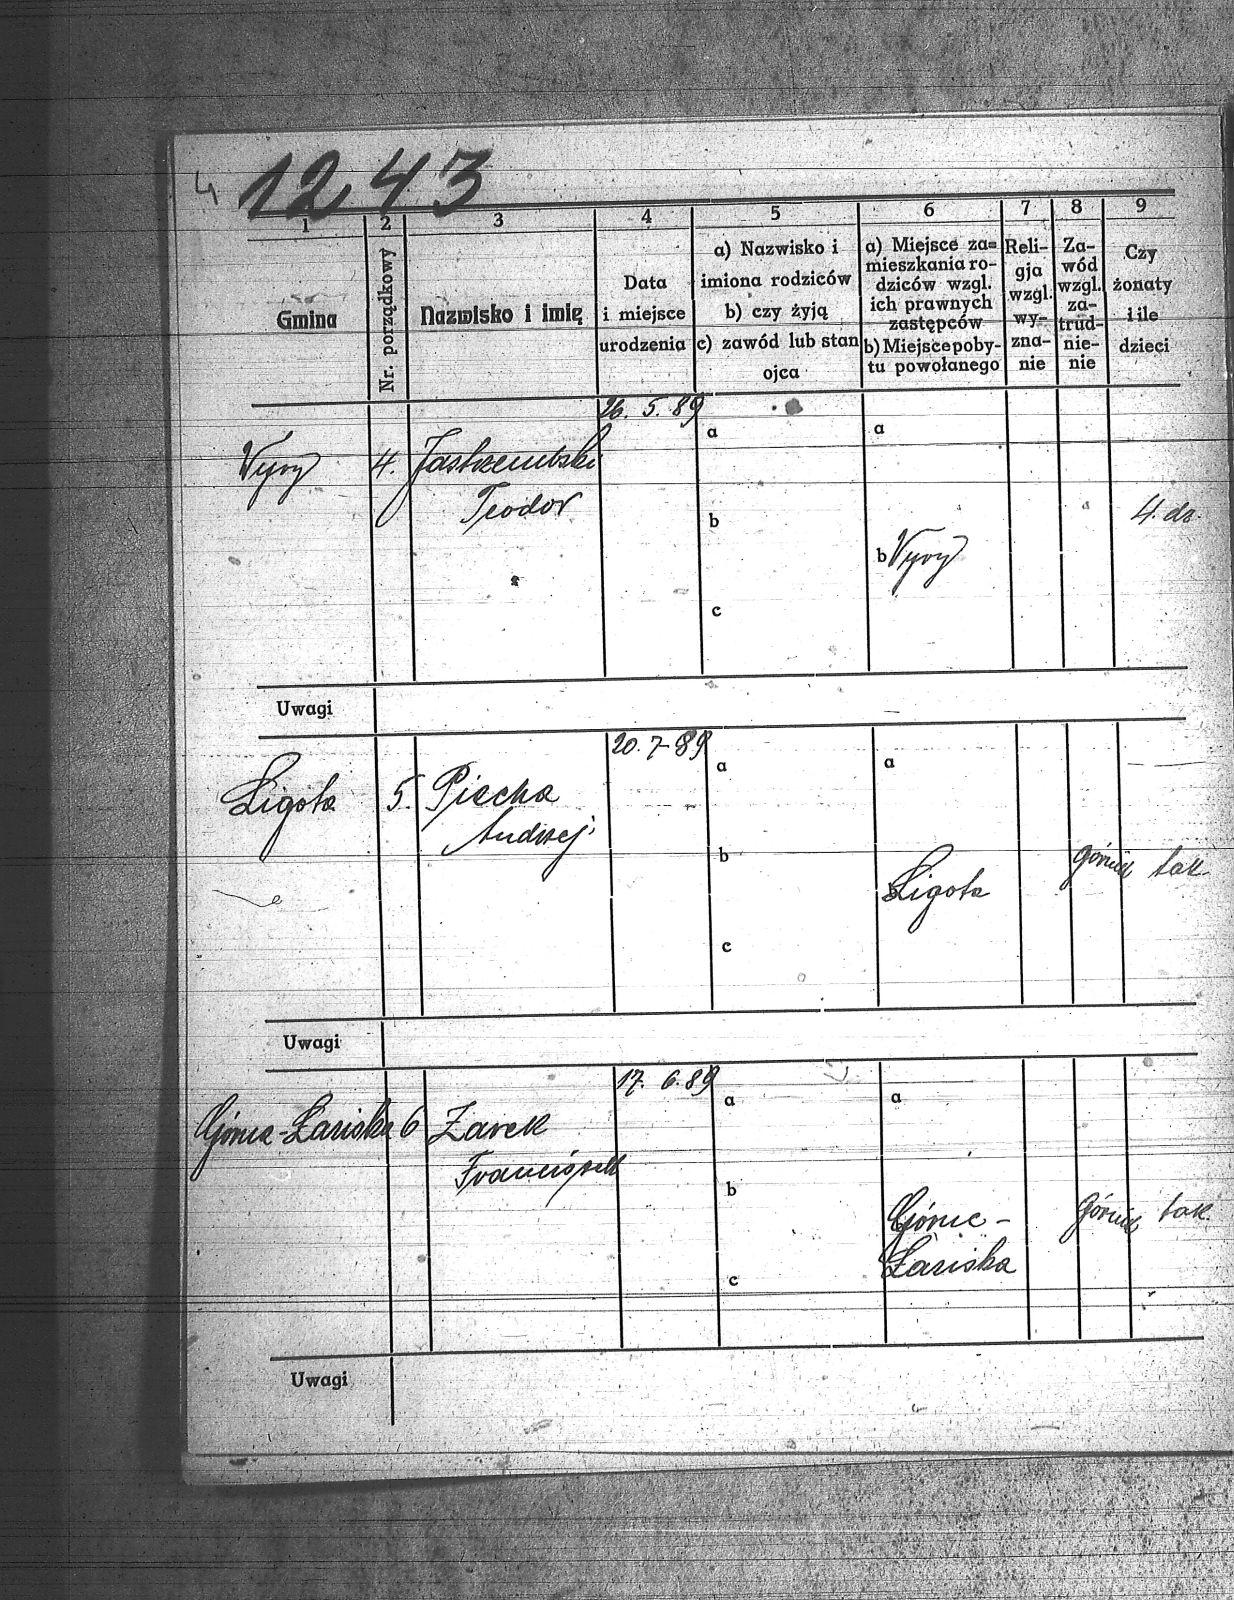 4 1243
1 2 3 4 5 6 7 8 9
Gmina
Nr. porządkowy
Nazwisko i imię
Data
i miejsce
urodzenia
a) Nazwisko i
imiona rodziców
b) czy żyją
c) zawód lub stan
ojca
a) Miejsce za=
mieszkania ro-
dziców wzgl.
ich prawnych
zastępców
b) Miejsce poby-
tu powołanego
Reli-
gja
wzgl.
wy-
zna-
nie
Za-
wód
wzgl.
za-
trud-
nie-
nie
Czy
żonaty
i ile
dzieci
26. 5. 89
Vyry 4. Jastrzembski a a
Teodor b 4. dz.
b Vyry
c
Uwagi
20. 7-89
Ligota 5. Piecha a a
Andrzej
b górnik tak
b Ligota
c
Uwagi
17. 6. 89
Górne-Łaziska 6 Zarek a a
Franciszek
b Górne- górnik tak
c Łaziska
Uwagi